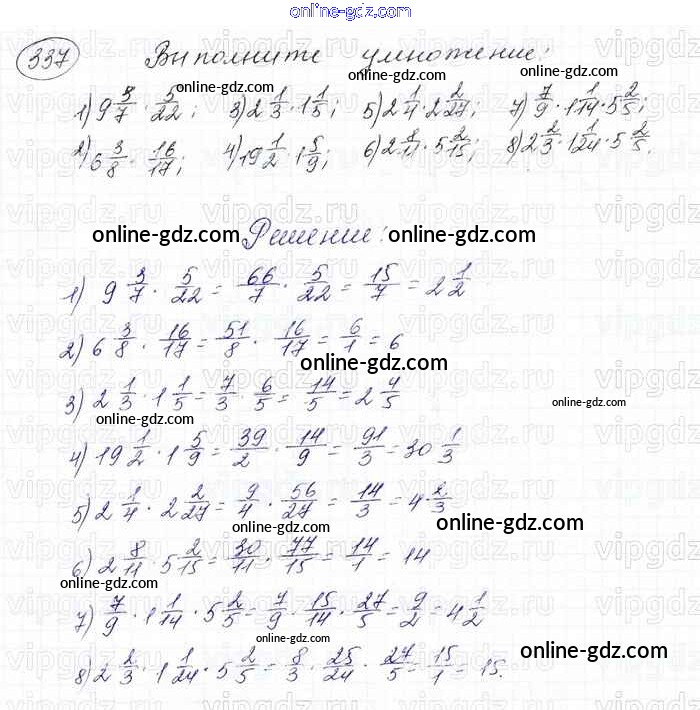 online-gdz.com
337 Выполните умножение:
1) 9 3/7 · 5/22; 3) 2 1/3 · 1 1/5; 5) 2 1/4 · 2 2/27; 7) 7/9 · 1 1/14 · 5 2/5;
2) 6 3/8 · 16/17; 4) 19 1/2 · 1 5/9; 6) 2 8/11 · 5 2/15; 8) 2 2/3 · 1 1/24 · 5 2/5.
online-gdz.com Решение: online-gdz.com
1) 9 3/7 · 5/22 = 66/7 · 5/22 = 15/7 = 2 1/2
2) 6 3/8 · 16/17 = 51/8 · 16/17 = 6/1 = 6
online-gdz.com
3) 2 1/3 · 1 1/5 = 7/3 · 6/5 = 14/5 = 2 4/5
online-gdz.com
4) 19 1/2 · 1 5/9 = 39/2 · 14/9 = 91/3 = 30 1/3
5) 2 1/4 · 2 2/27 = 9/4 · 56/27 = 14/3 = 4 2/3
online-gdz.com
6) 2 8/11 · 5 2/15 = 30/11 · 77/15 = 14/1 = 14
online-gdz.com
7) 7/9 · 1 1/14 · 5 2/5 = 7/9 · 15/14 · 27/5 = 9/2 = 4 1/2
online-gdz.com
8) 2 2/3 · 1 1/24 · 5 2/5 = 8/3 · 25/24 · 27/5 = 15/1 = 15.